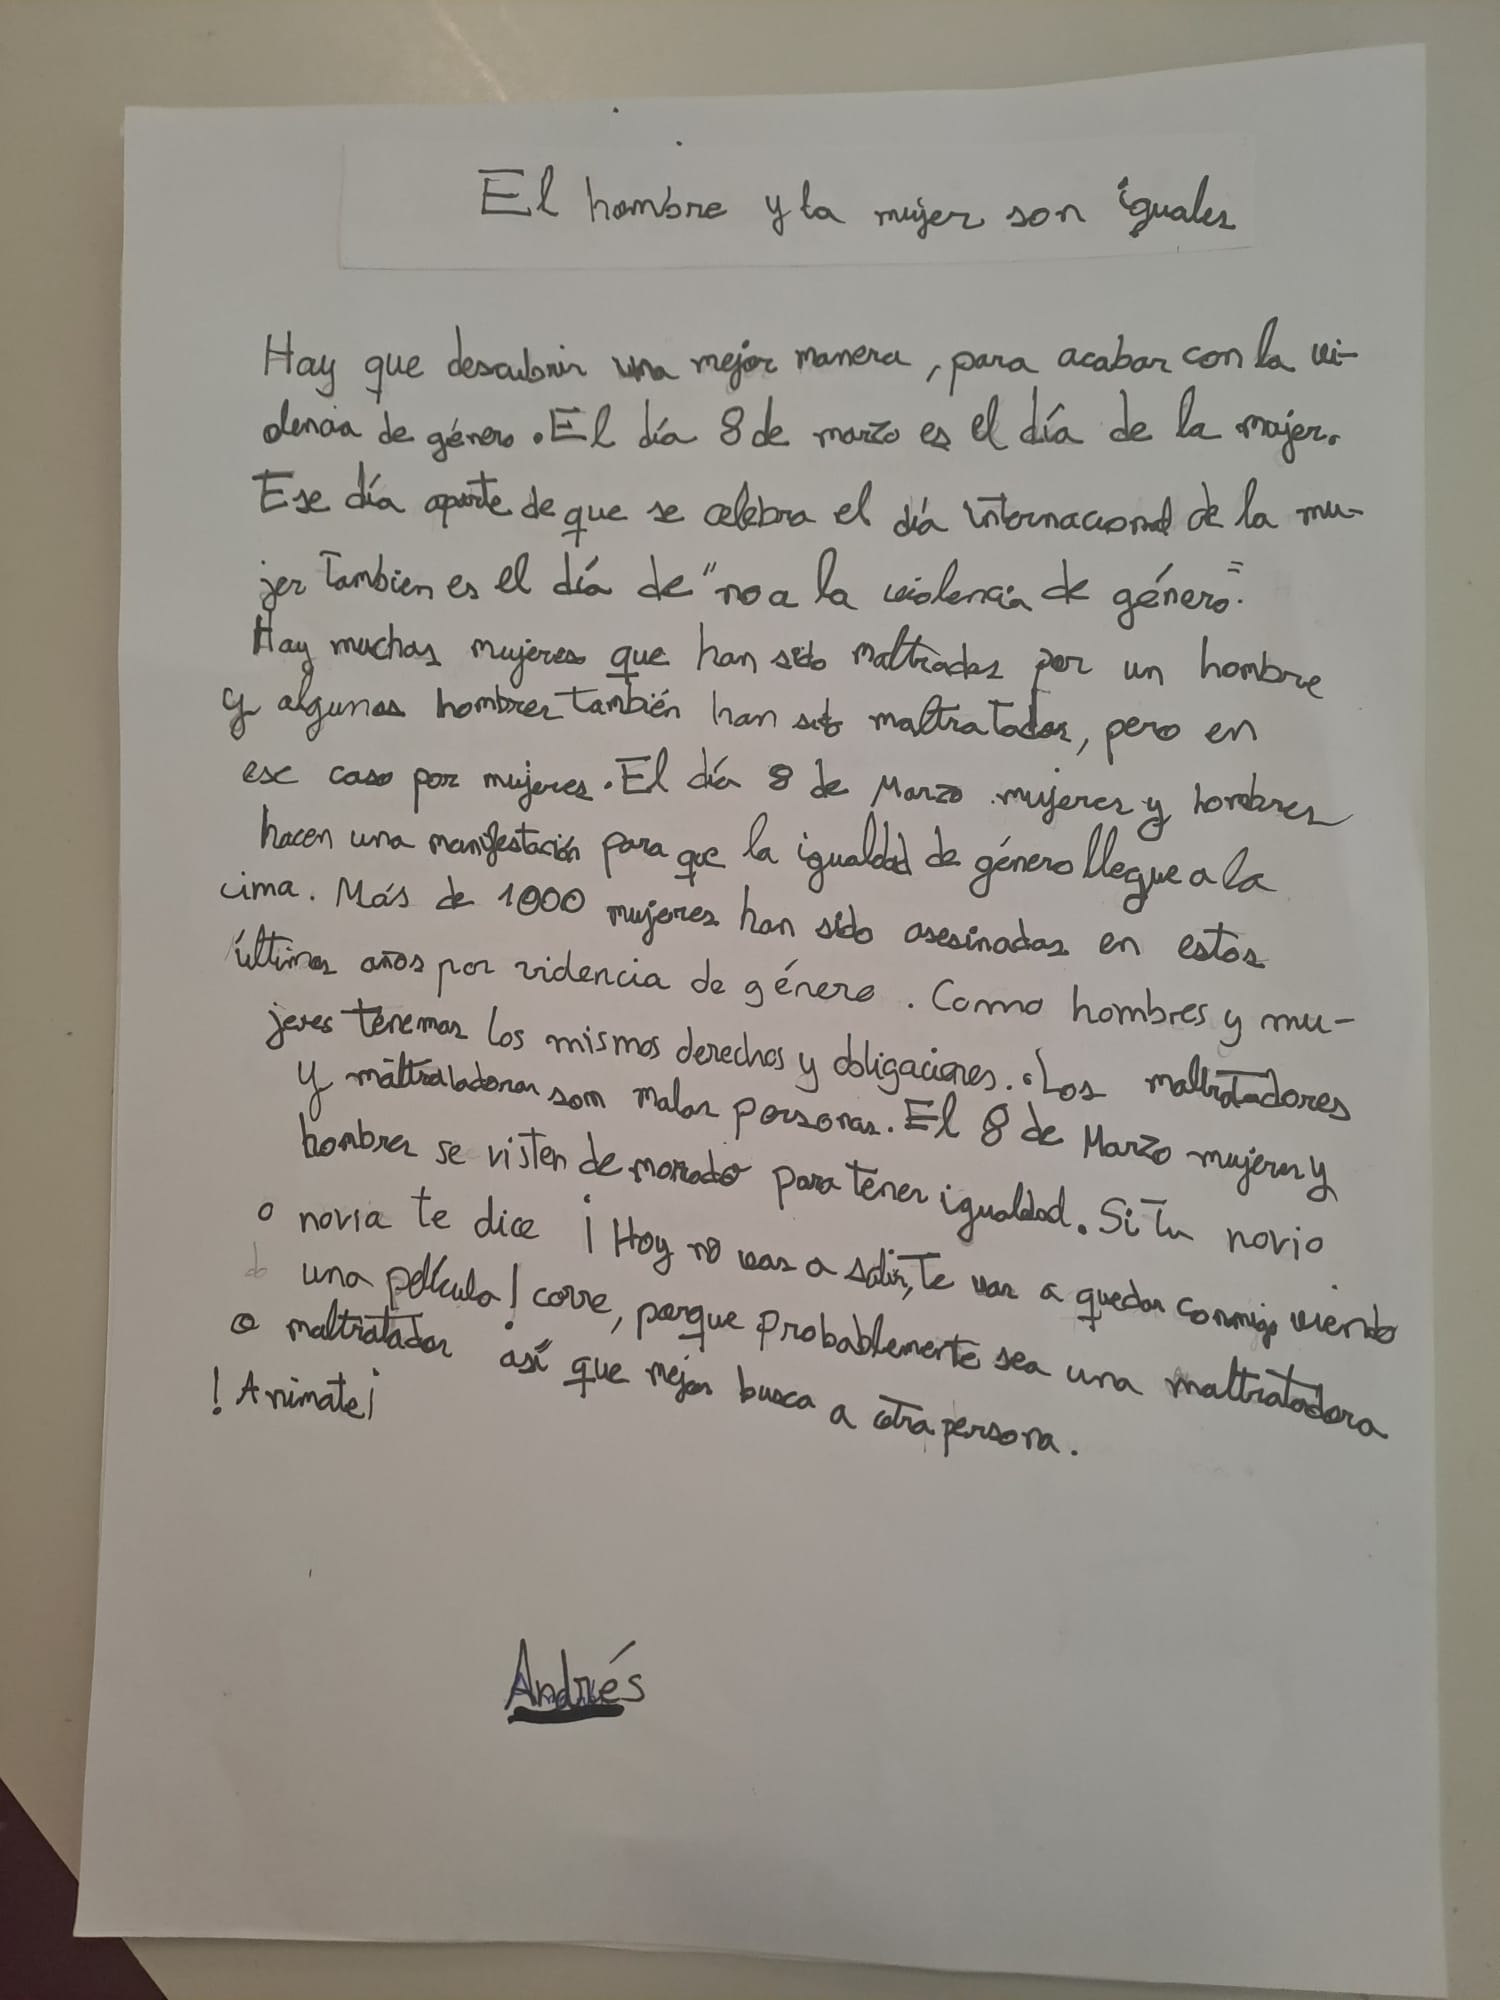 El hombre y la mujer son iguales
Hay que descubrir una mejor manera, para acabar con la vi-
olencia de género. El día 8 de marzo es el día de la mujer.
Ese día aparte de que se celebra el día internacional de la mu-
jer tambien es el día de "no a la violencia de género".
Hay muchas mujeres que han sido maltradas por un hombre
y algunos hombres también han sido maltratados, pero en
ese caso por mujeres. El día 8 de Marzo mujeres y hombres
hacen una manifestación para que la igualdad de género llegue a la
cima. Más de 1000 mujeres han sido asesinadas en estos
últimos años por videncia de género. Como hombres y mu-
jeres tenemos los mismos derechos y obligaciones. Los maltratadores
y maltratadoras som malas personas. El 8 de Marzo mujeres y
hombres se visten de morado para tener igualdad. Si tu novio
o novia te dice ¡Hoy no vas a salir, te vas a quedar conmigo viendo
una película! corre, porque probablemente sea una maltratadora
o maltratador así que mejor busca a otra persona.
!Animate¡
Andrés